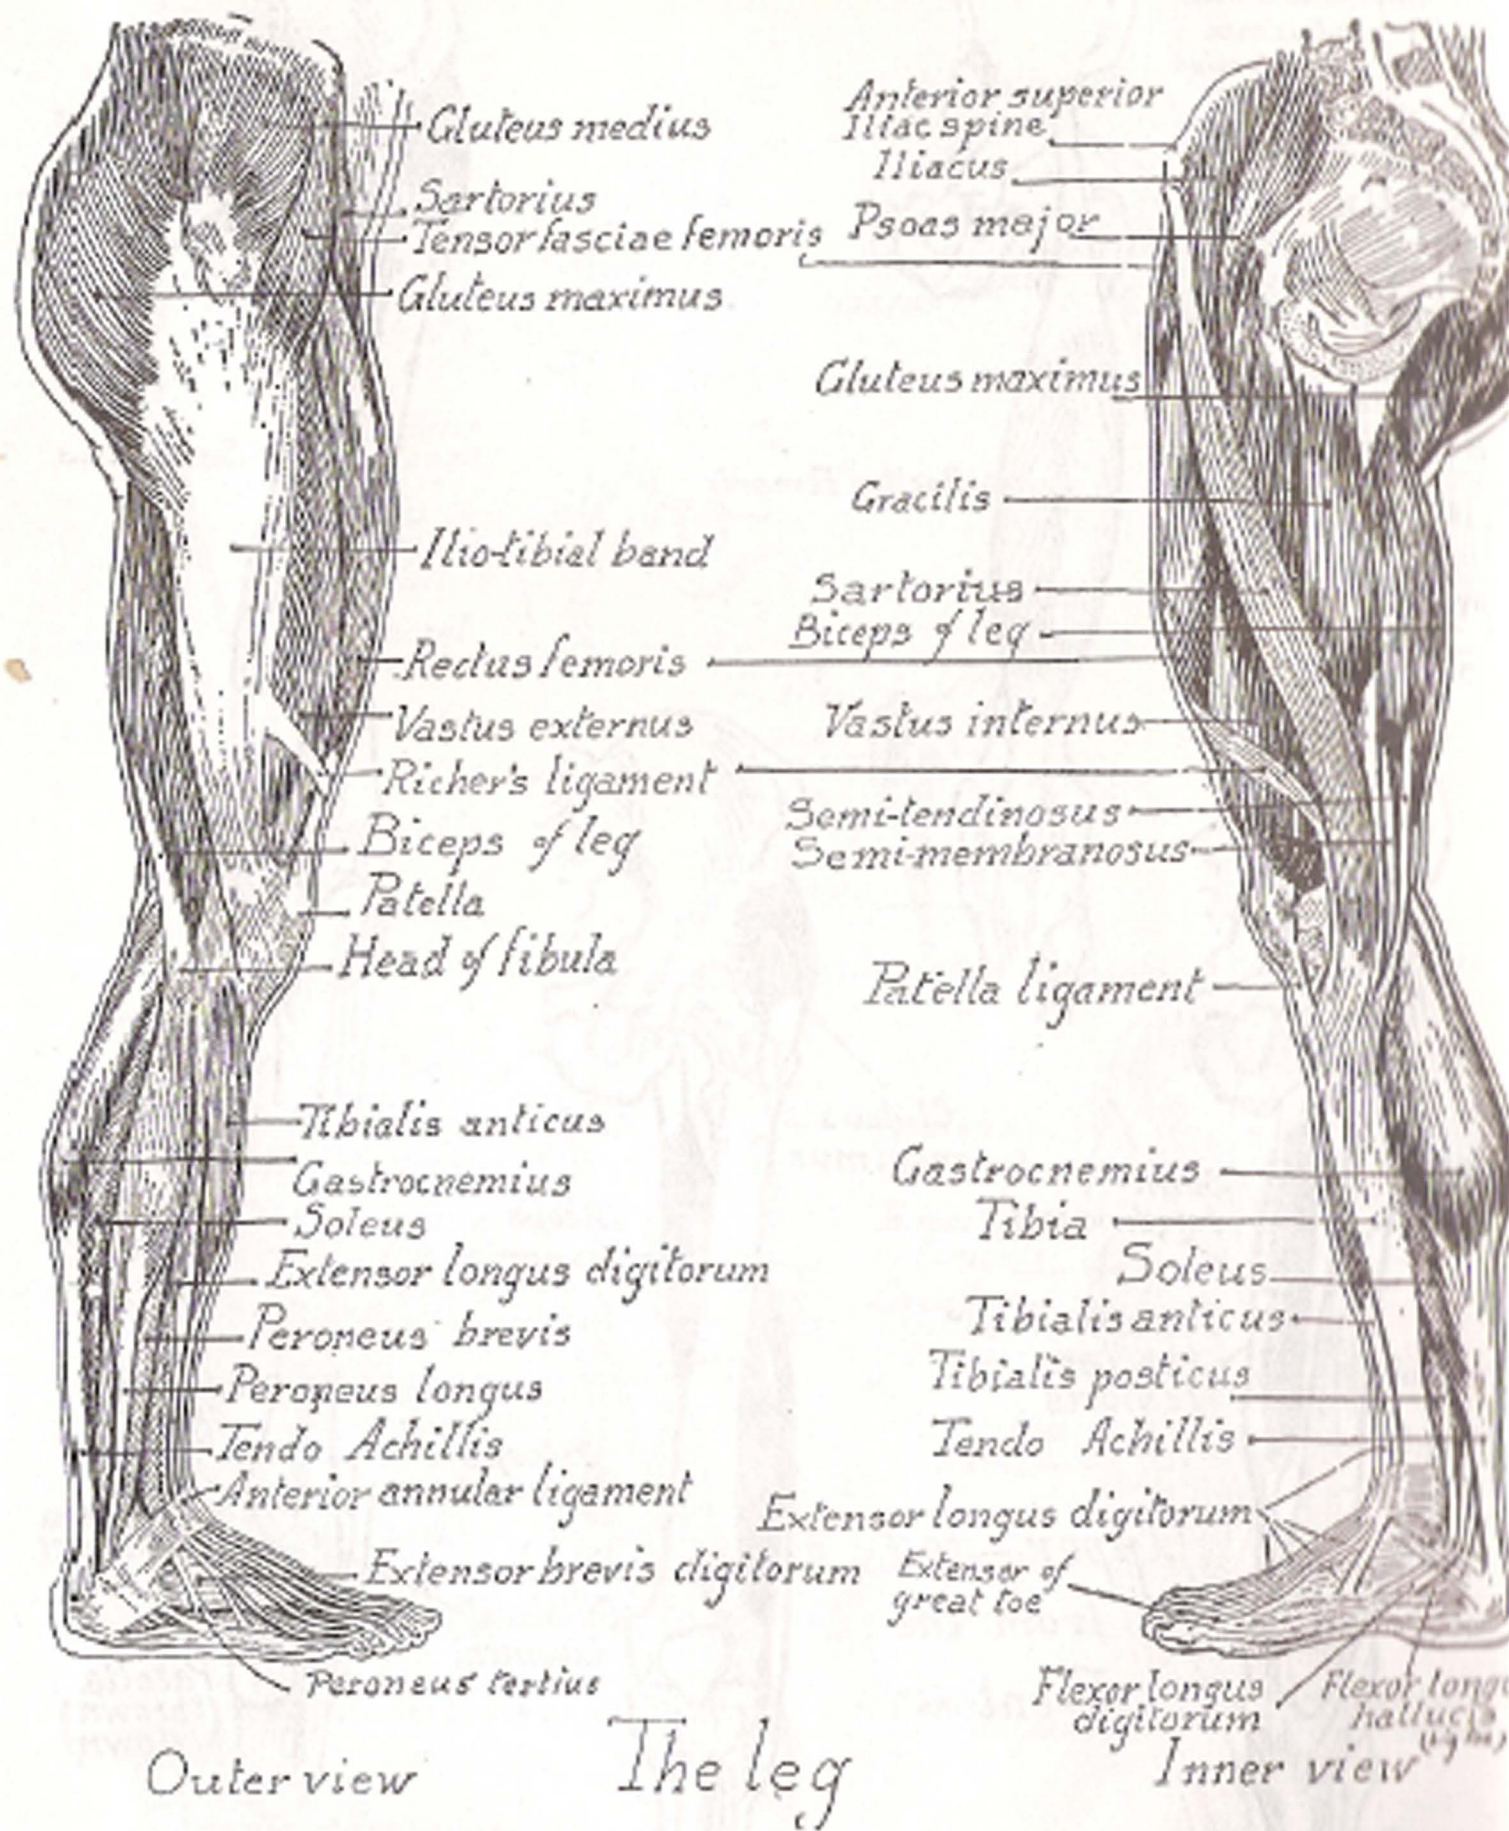 Gluteus medius
Sartorius
Tensor fasciae femoris
Gluteus maximus
Ilio-tibial band
Rectus femoris
Vastus externus
Richer's ligament
Biceps of leg
Patella
Head of fibula
Tibialis anticus
Gastrocnemius
Soleus
Extensor longus digitorum
Peroneus brevis
Peroneus longus
Tendo Achillis
Anterior annular ligament
Extensor brevis digitorum
Peroneus tertius
Outer view
The leg
Anterior superior
Iliac spine
Iliacus
Psoas major
Gluteus maximus
Gracilis
Sartorius
Biceps of leg
Vastus internus
Semi-tendinosus
Semi-membranosus
Patella ligament
Gastrocnemius
Tibia
Soleus
Tibialis anticus
Tibialis posticus
Tendo Achillis
Extensor longus digitorum
Extensor of
great toe
Flexor longus
digitorum
Flexor longu
hallucis
Inner view